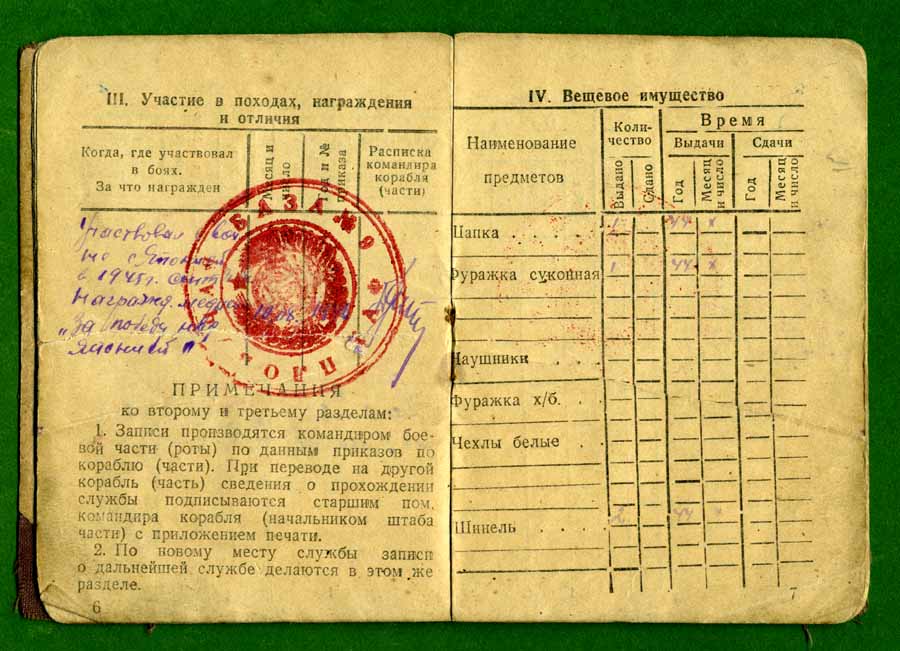 III. Участие в походах, награждения
и отличия
Когда, где участвовал
в боях.
За что награжден
Месяц и
число
Год и №
приказа
Расписка
командира
корабля
(части)
БАЗА №9
Участвовал в вой
не с Японией
в 1945 г.
Награжд. медалью
"За победу над
Японией"
ПРИМЕЧАНИЯ
ко второму и третьему разделам:
1. Записи производятся командиром бое-
вой части (роты) по данным приказов по
кораблю (части). При переводе на другой
корабль (часть) сведения о прохождении
службы подписываются старшим пом.
командира корабля (начальником штаба
части) с приложением печати.
2. По новому месту службы записи
о дальнейшей службе делаются в этом же
разделе.
6
IV. Вещевое имущество
Наименование
предметов
Коли-
чество
Время
Выдачи
Сдачи
Выдано
Сдано
Год
Месяц
и число
Год
Месяц
и число
Шапка 1 44 х
Фуражка суконная 1 44 х
Наушники
Фуражка х/б.
Чехлы белые
Шинель 2 44 х
7